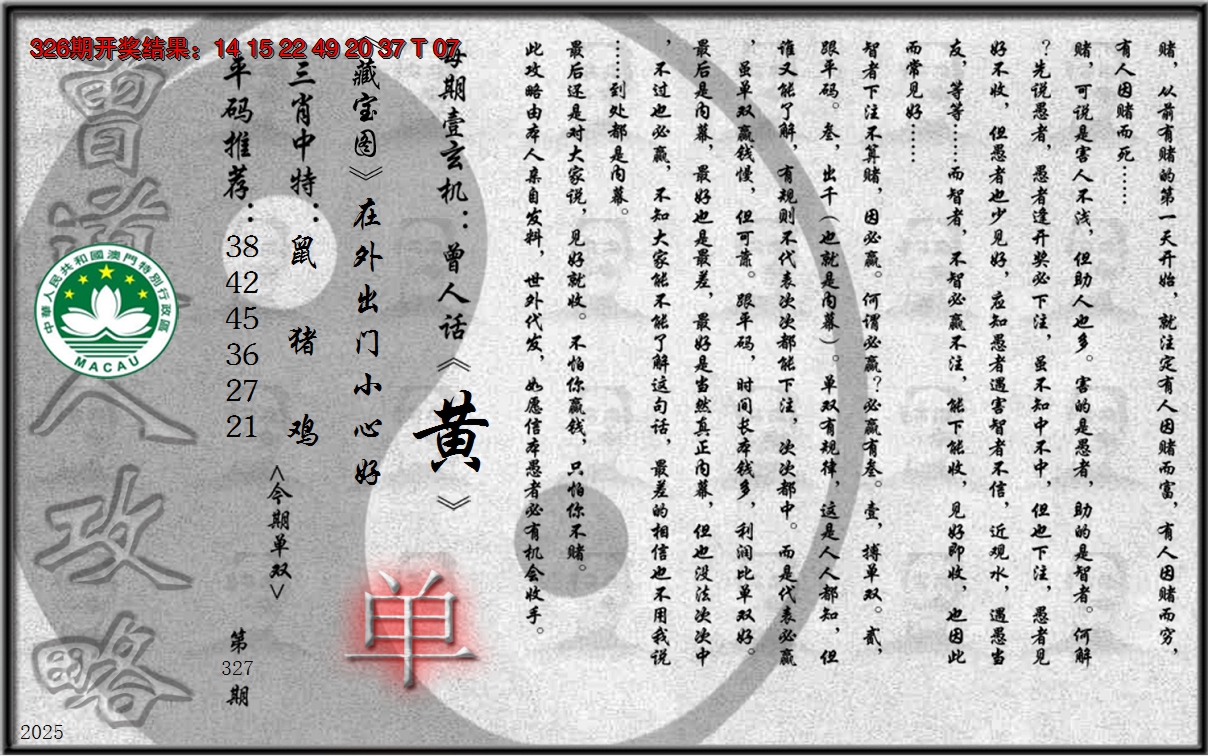 326期开奖结果：14 15 22 49 20 37 T 07
赌，从前有赌的第一天开始，就注定有人因赌而富，有人因赌而穷，
有人因赌而死……
赌，可说是害人不浅，但助人也多。害的是愚者，助的是智者。何解
？先说愚者，愚者逢开奖必下注，虽不知中不中，但也下注，愚者见
好不收，但愚者也少见好，应知愚者遇害智者不信，近观水，遇愚当
友，等等……而智者，不智必赢不注，能下能收，见好即收，也因此
而常见好……
智者下注不算赌，因必赢。何谓必赢？必赢有叁。壹，搏单双。贰，
跟平码。叁，出千（也就是内幕）。单双有规律，这是人人都知，但
谁又能了解，有规则不代表次次都能下注，次次都中。而是代表必赢
，虽单双赢钱慢，但可靠。跟平码，时间长本钱多，利润比单双好。
最后是内幕，最好也是最差，最好是当然真正内幕，但也没法次次中
，不过也必赢，不知大家能不能了解这句话，最差的相信也不用我说
……到处都是内幕。
最后还是对大家说，见好就收。不怕你赢钱，只怕你不赌。
此攻略由本人亲自发料，世外代发，如愿信本愚者必有机会收手。
每期壹玄机：曾人话《黄》
《藏宝图》在外出门小心好
三肖中特：鼠 猪 鸡
平码推荐：38 42 45 36 27 21
<今期单双>
单
第327期
曾道人攻略
中華人民共和國澳門特別行政區
MACAU
2025